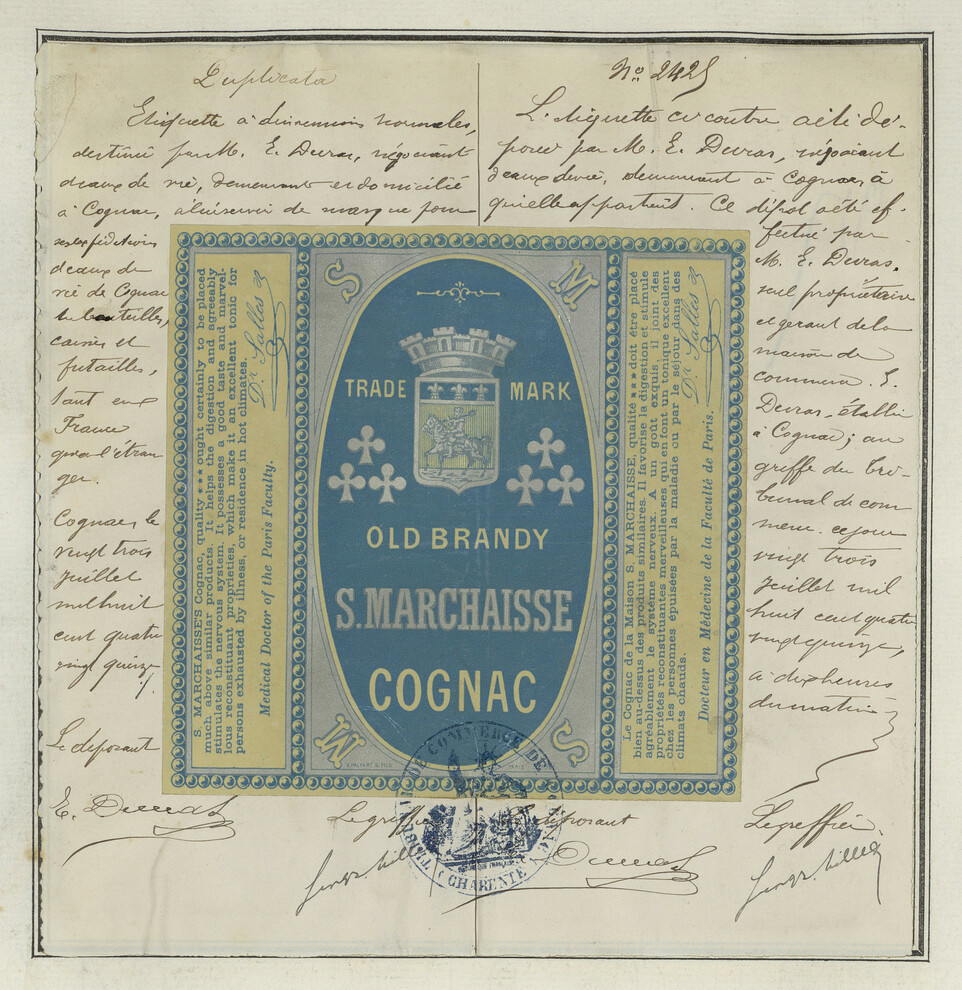 Duplicata
Etiquette à dimensions normales,
destinée par M. E. Devras, négociant
d'eaux de vie, demeurant et domicilié
à Cognac, à lui servir de marque pour
ses expéditions
d'eaux de
vie de Cognac
en bouteilles,
caisses et
futailles,
tant en
France
qu'à l'étran
ger.
Cognac, le
vingt trois
juillet
mil huit
cent quatre
vingt quinze
Le déposant
E. Devras
No 2425
L'étiquette ci contre a été dé-
posée par M. E. Devras, négociant
d'eaux de vie, demeurant à Cognac, à
qui elle appartient. Ce dépôt a été ef-
fectué par
M. E. Devras,
seul propriétaire
et gérant de la
maison de
commerce E.
Devras, établi
à Cognac; au
greffe du Tri-
bunal de com
merce ce jour
vingt trois
Juillet mil
huit cent quatre
vingt quinze,
à dix heures
du matin
Le greffier
Le déposant
Le greffier
S. MARCHAISSE'S Cognac, quality *** ought certainly to be placed
much above similar products. It helps the digestion and agreeably
stimulates the nervous system. It possesses a good taste and marvel-
lous reconstituant proprieties, which make it an excellent tonic for
persons exhausted by illness, or residence in hot climates.
Dr Sallès
Medical Doctor of the Paris Faculty.
S M
TRADE MARK
OLD BRANDY
S. MARCHAISSE
COGNAC
M S
Le Cognac de la Maison S. MARCHAISSE, qualité *** doit être placé
bien au-dessus des produits similaires. Il favorise la digestion et stimule
agréablement le système nerveux. A un goût exquis il joint des
propriétés reconstituantes merveilleuses qui en font un tonique excellent
chez les personnes épuisées par la maladie ou par le séjour dans des
climats chauds.
Dr Sallès
Docteur en Médecine de la Faculté de Paris.
TRIBUNAL DE COMMERCE DE COGNAC
(CHARENTE)